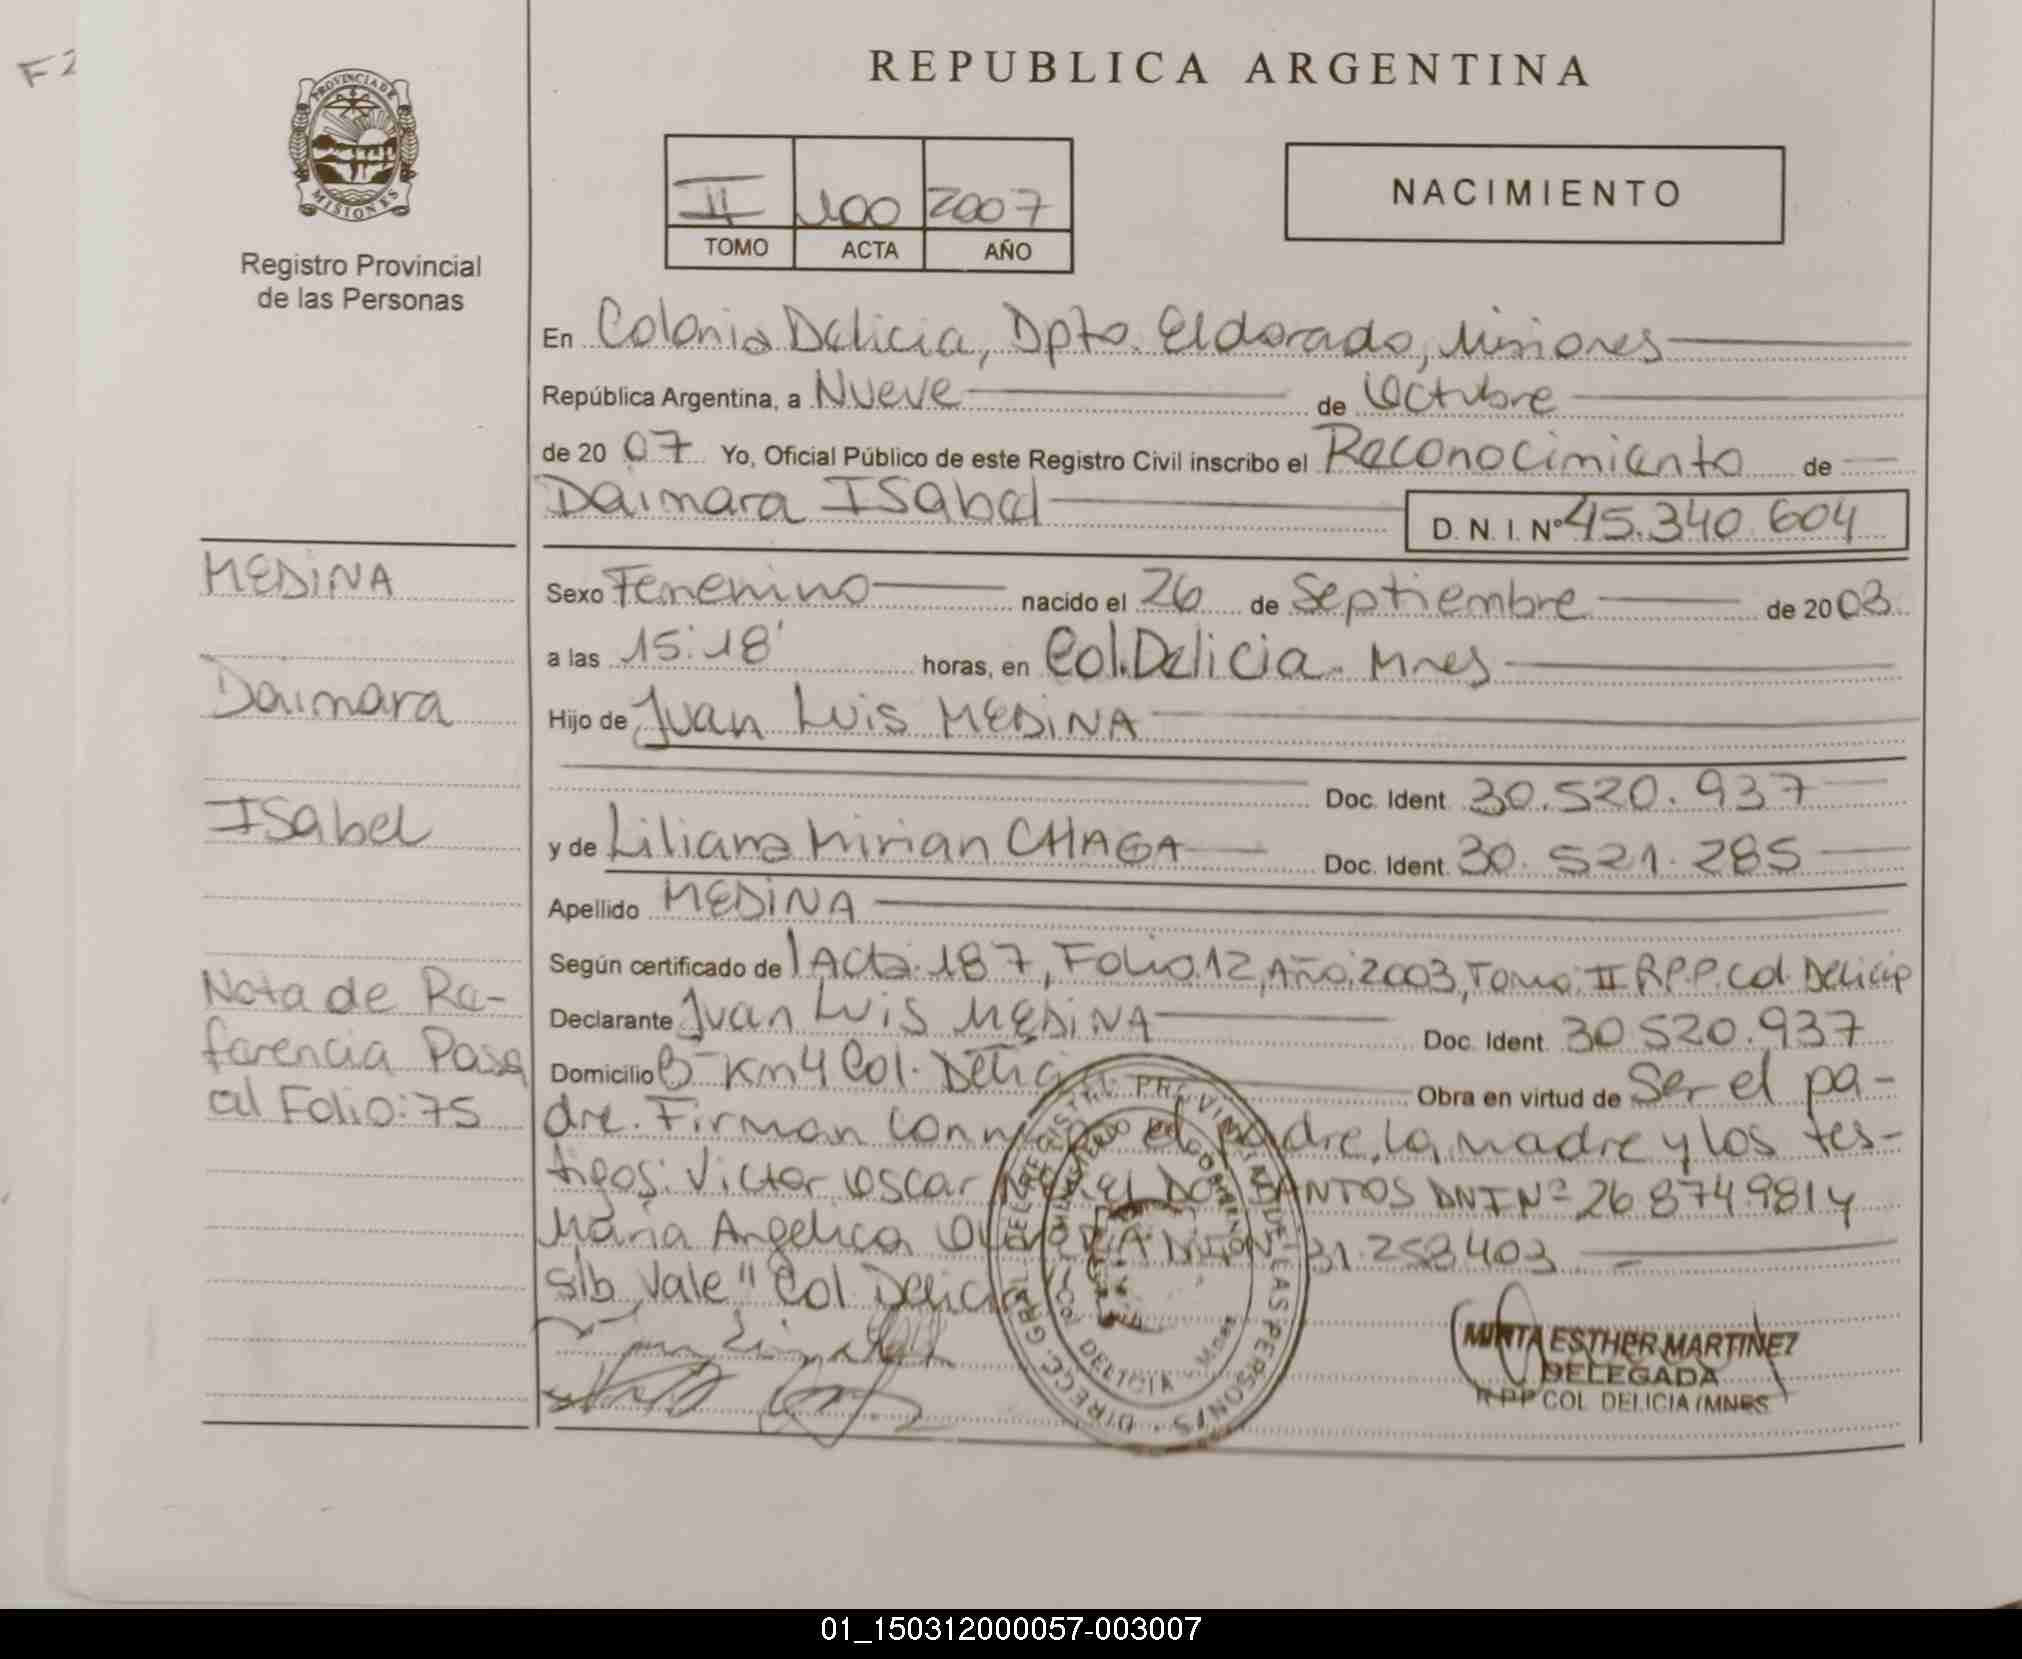 F 2
REPUBLICA ARGENTINA
PROVINCIA DE MISIONES
Registro Provincial
de las Personas
II 100 2007
TOMO ACTA AÑO
NACIMIENTO
En Colonia Delicia, Dpto. Eldorado, Misiones
República Argentina, a Nueve de Octubre
de 2007 Yo, Oficial Público de este Registro Civil inscribo el Reconocimiento de
Daimara ISabel
D. N. I. Nº 45.340.604
MEDiNA
Daimara
ISabel
Nota de Re-
ferencia Pasa
al Folio: 75
Sexo Femenino nacido el 26 de Septiembre de 2003
a las 15:18' horas, en Col. Delicia - Mnes
Hijo de Juan Luis MEDiNA
Doc. Ident. 30.520.937
y de Liliana Mirian CHAGA Doc. Ident. 30.521.285
Apellido MEDiNA
Según certificado de Acta: 187, Folio 12, Año: 2003, Tomo: II R.P.P. Col. Delicia
Declarante Juan Luis MEDiNA Doc. Ident. 30520.937
Domicilio Bº Km 4 Col. Delicia Obra en virtud de Ser el pa-
dre. Firman conmigo el padre, la madre y los tes-
tigos: Victor Oscar DOS SANTOS DNI Nº 26 874981 y
Maria Angelica DNI Nº 31.258.403
s/b "Vale" Col. Delicia
DIRECC. GRAL. DEL REGISTRO PROVINCIAL DE LAS PERSONAS
MINISTERIO DE GOBIERNO
COL. DELICIA - Mnes
MIRTA ESTHER MARTINEZ
DELEGADA
R P P COL DELICIA /MNES
01_150312000057-003007